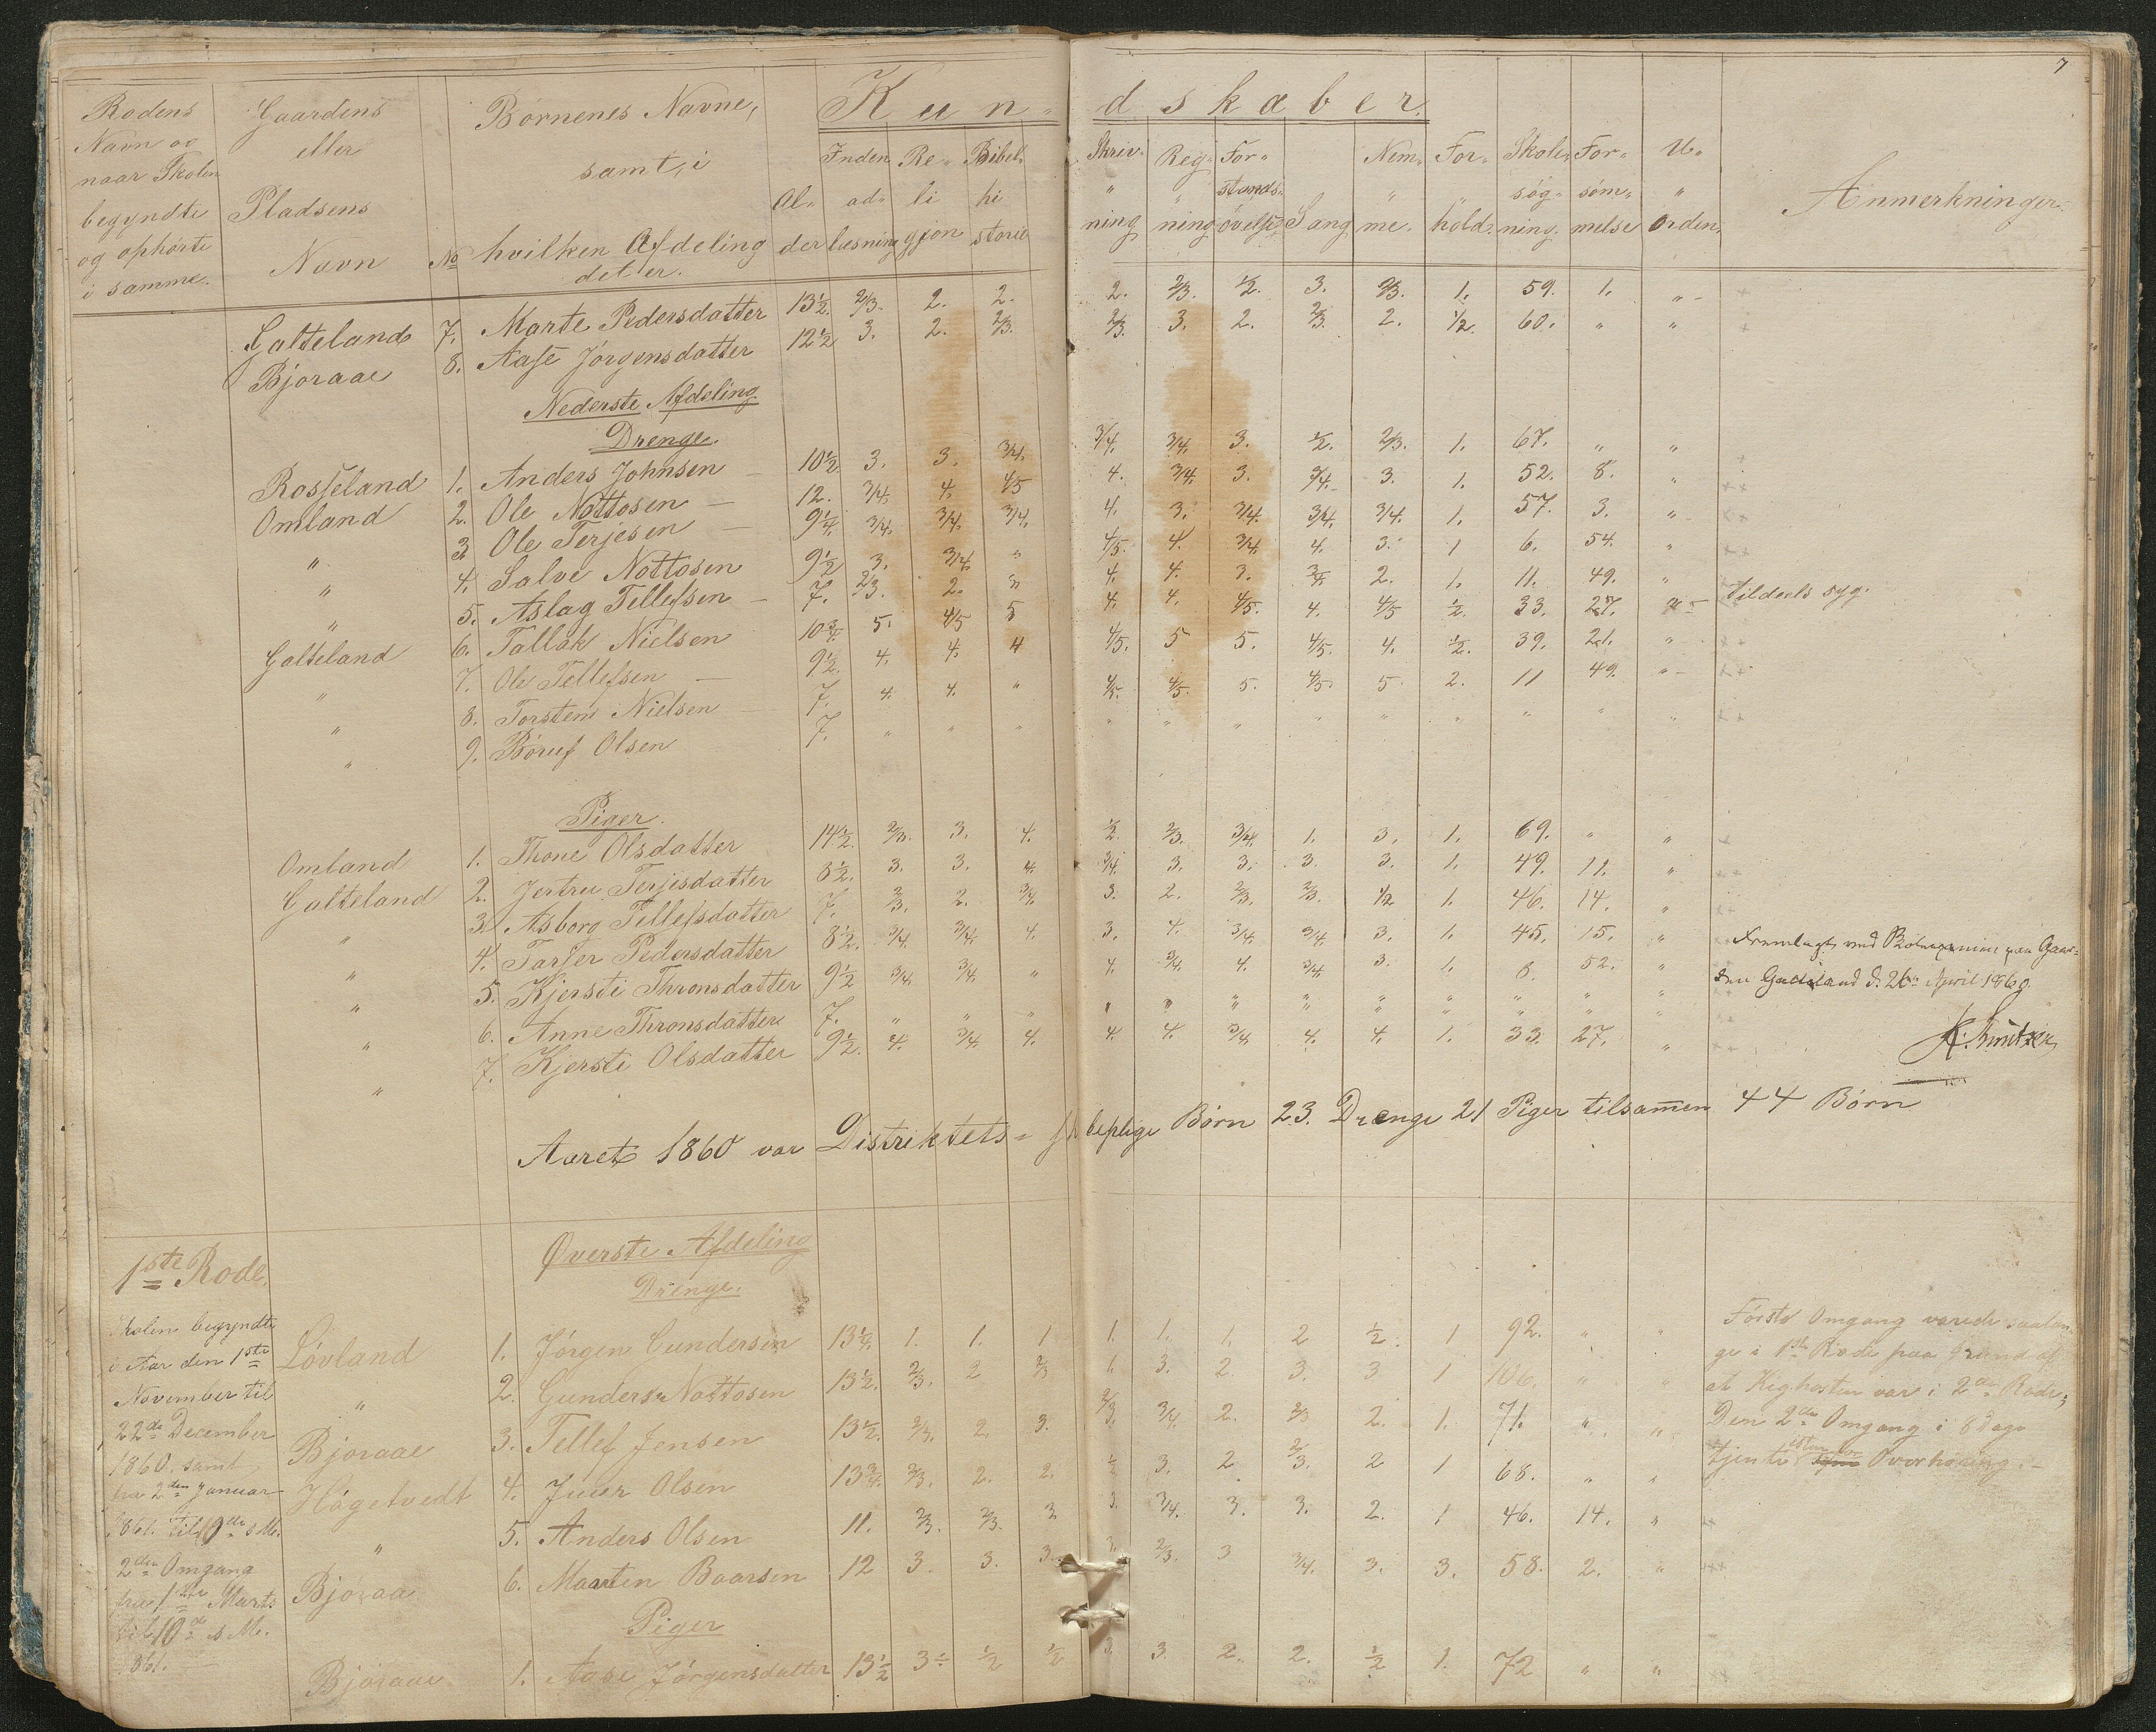 7
Rodens Navn og naar Skolen begyndte og ophørte i samme.
Gaardens eller Pladsens Navn
No
Børnenes Navne, samt, i hvilken Afdeling det er.
Kundskaber.
Alder
Indenadlæsning
Religjon
Bibelhistorie
Skrivning
Regning
Forstandsøvelse
Sang
Nemme.
Forhold.
Skolesøgning.
Forsømmelse
Uorden.
Anmerkninger.
Galteland 7. Marte Pedersdatter 13½. 2/3. 2. 2. 2. 2/3. ½. 3. 2/3. 1. 59. 1. "
Bjoraae 8. Aase Jørgensdatter 12½ 3. 2. 2/3. 2/3. 3. 2. 2/3. 2. ½. 60. " "
Nederste Afdeling
Drenge.
Rosseland 1. Anders Johnsen 10½ 3. 3. 3/4. 3/4. 3/4. 3. ½. 2/3. 1. 67. " "
Omland 2. Ole Nottosen 12. 3/4. 4. 4/5 4. 3/4. 3. 3/4. 3. 1. 52. 8. "
" 3 Ole Terjesen 9¼. 3/4. 3/4. 3/4. 4. 3. 3/4. 3/4. 3/4. 1. 57. 3. "
" 4. Salve Nottosen 9½ 3. 3/4. " 4/5. 4. 3/4. 4. 3. 1 6. 54. "
" 5. Aslag Tellefsen 7. 2/3. 2. " 4. 4. 3. 3/4. 2. 1. 11. 49. " tildeels syg.
Galteland 6. Tallak Nielsen 10¾. 5. 4/5 5 4. 4. 4/5. 4. 4/5 ½. 33. 27. "
" 7. Ole Tellefsen 9½. 4. 4. 4 4/5. 5 5. 4/5. 4. ½. 39. 21. "
" 8. Torsten Nielsen 7. 4. 4. " 4/5. 4/5. 5. 4/5. 5. 2. 11 49. "
" 9. Børuf Olsen 7. " " " " " " " " " " " "
Piger.
Omland 1. Thone Olsdatter 14½. 2/3. 3. 4. ½. 2/3. 3/4. 1. 3. 1. 69. " "
Galteland 2. Jertru Terjesdatter 8½. 3. 3. 4. 3/4. 3. 3. 3. 3. 1. 49. 11. "
" 3. Asborg Tellefsdatter 7. 2/3. 2. 3/4. 3. 2. 2/3. 2/3. ½ 1. 46. 14. "
" 4. Tarjer Pedersdatter 8½. 3/4. 3/4. 4. 3. 4. 3/4. 3/4. 3. 1. 45. 15. "
" 5. Kjersti Thronsdatter 9½ 3/4. 3/4. " 4. 3/4. 4. 3/4. 3. 1. 8. 52. "
" 6. Anne Thronsdatter 7. " " " " " " " " " " " "
" 7. Kjersti Olsdatter 9½. 4. 3/4. 4. 4. 4. 3/4. 4. 4. 1. 33. 27. "
Fremlagt ved
den Galteland d. 26de April 1860.
Aaret 1860 var Distriktets Børn 23. Drenge 21 Piger tilsamen 44 Børn
1ste Rode.
Skolen begyndte
i Aar den 1ste
November til
22de December
1860. samt
fra 2den Januar
1861. til 10de s M.
2den Omgang
fra 1ste Marts
til 10de s M.
1861.
Øverste Afdeling
Drenge.
Løvland 1. Jørgen Gundersen 13¼. 1. 1. 1 1. 1. 1. 2 ½. 1 92. " "
" 2. Gunders Nottosen 13½. 2/3. 2 2/3 1. 3. 2. 3. 3 1 106. " "
Bjoraae 3. Tellef Jensen 13½. 2/3. 2. 3. 2/3. 3/4. 2. 2/3 2. 1. 71. " "
Høgetvedt 4. Juer Olsen 13¾. 2/3. 2. 2. ½ 3. 2 2/3. 2 1 68. " "
" 5. Anders Olsen 11. 2/3. 2/3. 3 3. 3/4. 3. 3. 2. 1 46. 14. "
Bjoraa 6. Maarten Baarsen 12 3. 3. 3. 3. 2/3. 3 3/4. 3. 3. 58. 2. "
Piger
Bjoraae 1. Aase Jørgensdatter 13½ 3 ½ ½ 3. 3. 2. 2. ½ 1. 72 " "
Første Omgang varede saalænge
i 1ste Rode paa Grund af
at Kighosten var i 2den Rode;
Den 2den Omgang i 8 Dage
tjente istedenfor Overhøring.